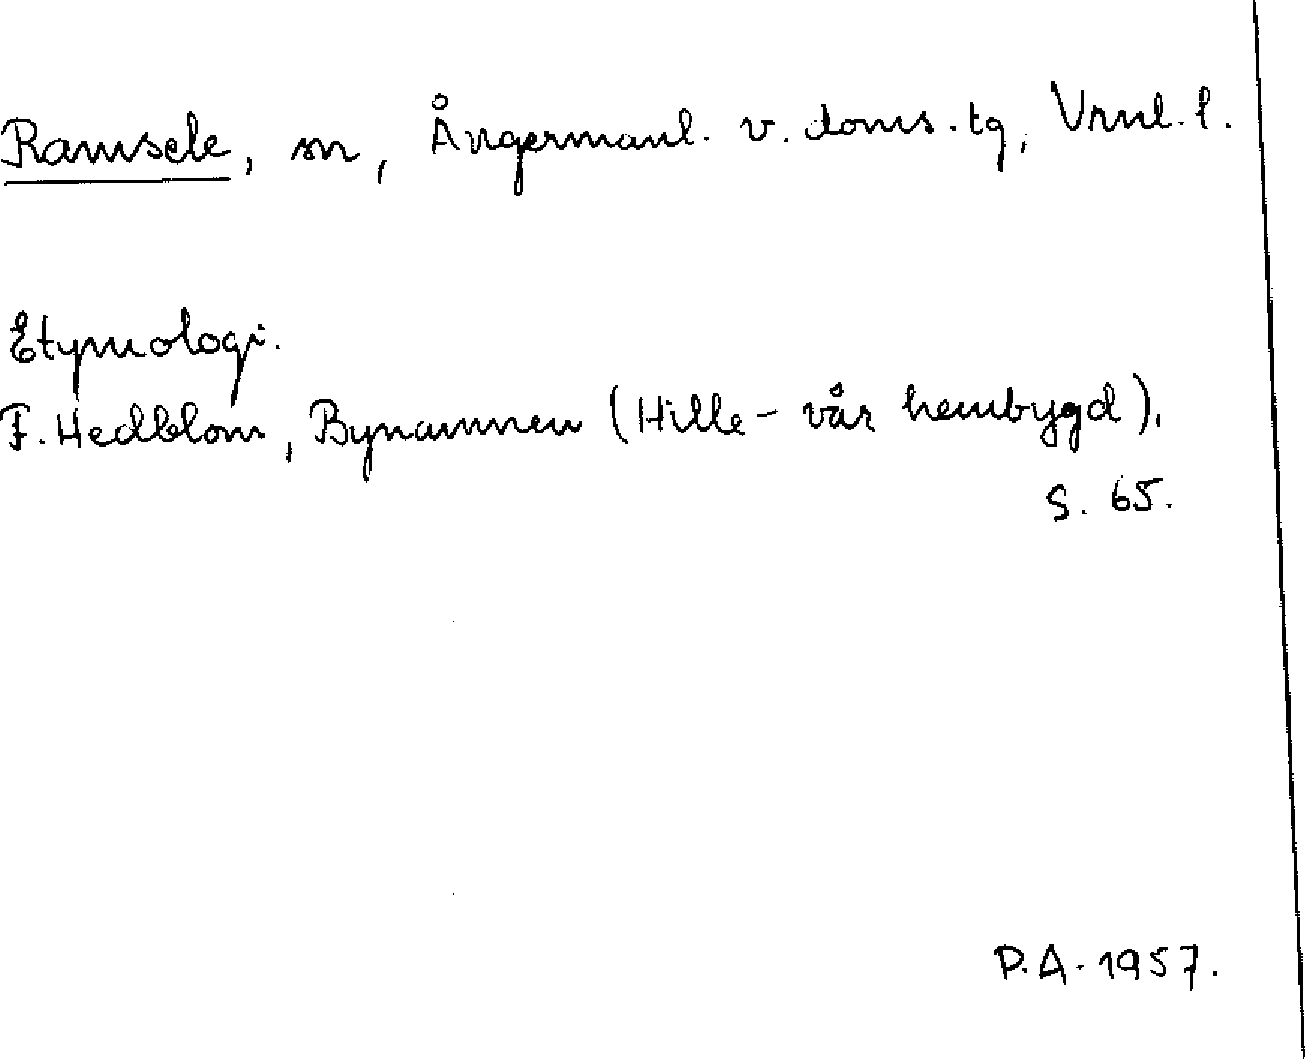 Ramsele, sn, Ångermanl. v. doms.tg, Vrnl. l.
Etymologi.
F. Hedblom, Bynamnen (Hille - vår hembygd),
S. 65.
P.A. 1957.